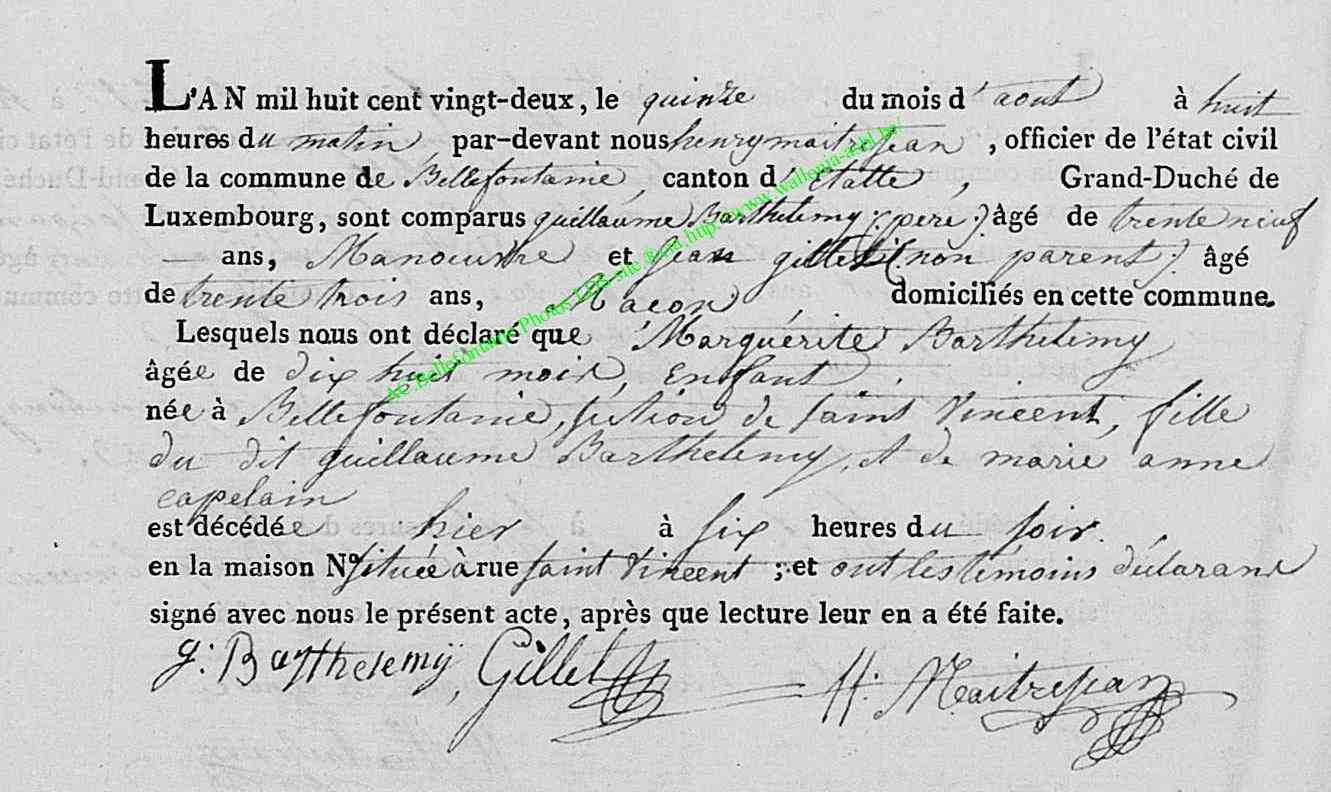 L'AN mil huit cent vingt-deux, le quinze du mois d'aout à huit
heures du matin, par-devant nous henry maitrejean, officier de l'état civil
de la commune de Bellefontaine, canton d'Etalle, Grand-Duché de
Luxembourg, sont comparus guillaume Barthelemy (pere) âgé de trente neuf
ans, Manoeuvre et Jean gillet (non parent) âgé
de trente trois ans, Macon, domiciliés en cette commune.
Lesquels nous ont déclaré que Marguérite Barthelemy
âgée de dix huit mois, Enfant,
née à Bellefontaine, section de saint Vincent, fille
du dit guillaume Barthelemy, et de marie anne
capelain
est décédée hier à six heures du soir.
en la maison No située à rue saint Vincent ; et ont les témoins déclarans
signé avec nous le présent acte, après que lecture leur en a été faite.
g: Barthelemÿ, Gillet H: Maitrejean